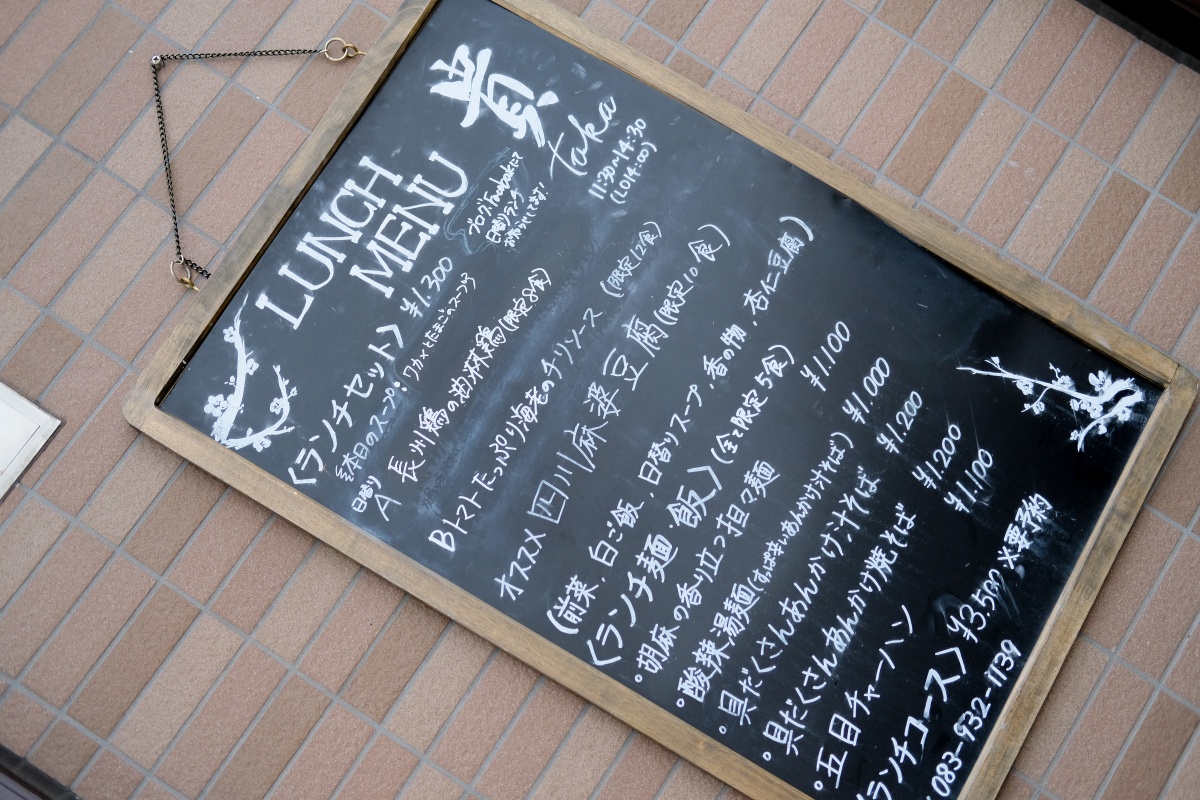 貴
taka
11:30~14:30
(LO14:00)
LUNCH
MENU
ブログ、Facebookにて
日替りランチ
お知らせしてます!
〈ランチセット〉 ¥1.300
本日のスープ: ワカメとたまごのスープ
日替り
A 長州鶏の油淋鶏(限定8食)
Bトマトたっぷり海老のチリソース (限定12食)
オススメ 四川麻婆豆腐(限定10食)
(前菜、白ご飯、日替りスープ、香の物、杏仁豆腐)
〈ランチ麺・飯〉(全て限定5食)
。胡麻の香り立つ担々麺 ¥1.100
。酸辣湯麺(すっぱ辛いあんかけ汁そば) ¥1.000
。具だくさんあんかけ汁そば ¥1.200
。具だくさんあんかけ焼そば ¥1.200
。五目チャーハン ¥1.100
〈ランチコース〉 ¥3.500 ※要予約
083-932-1139